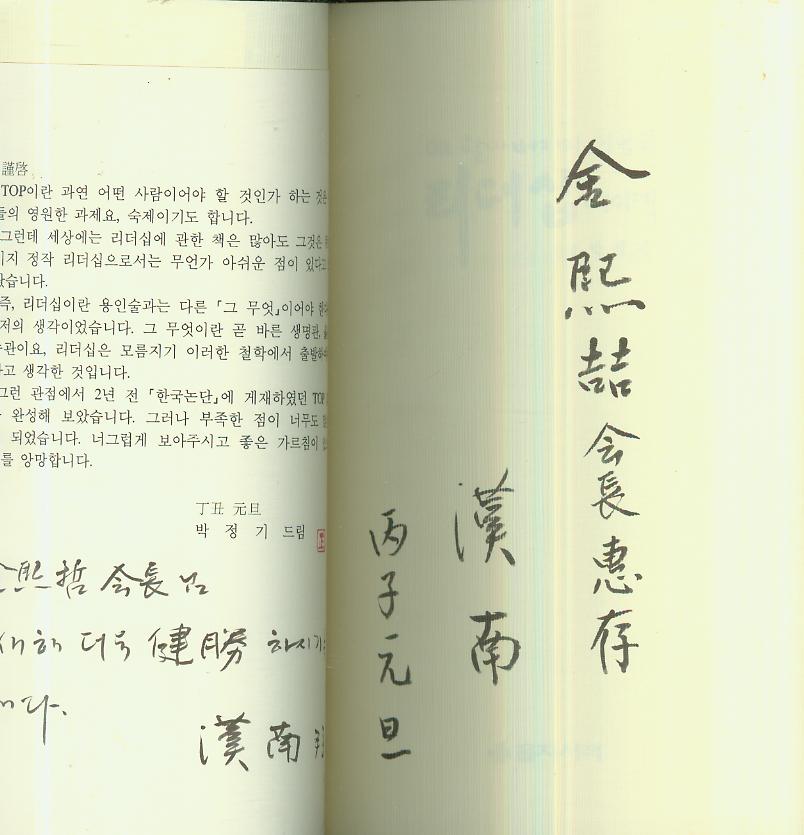 謹啓
TOP이란 과연 어떤 사람이어야 할 것인가 하는 것은
들의 영원한 과제요, 숙제이기도 합니다.
그런데 세상에는 리더십에 관한 책은 많아도 그것은
정작 리더십으로서는 무언가 아쉬운 점이 있다고
았습니다.
즉, 리더십이란 용인술과는 다른 「그 무엇」이어야 한다
저의 생각이었습니다. 그 무엇이란 곧 바른 생명관,
관이요, 리더십은 모름지기 이러한 철학에서 출발하여
생각한 것입니다.
그런 관점에서 2년 전 「한국논단」에 게재하였던 TOP
완성해 보았습니다. 그러나 부족한 점이 너무도
되었습니다. 너그럽게 보아주시고 좋은 가르침이
를 앙망합니다.
丁丑 元旦
박 정 기 드림
金熙哲 会長님
새해 더욱 健勝 하시기
니다.
漢南
金熙喆 会長 惠存
漢南
丙子元旦